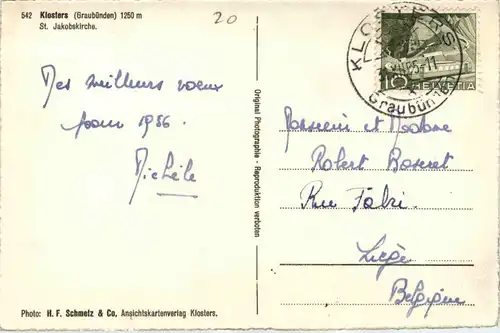 542 Klosters (Graubünden) 1250 m
St. Jakobskirche.
20
Mes meilleurs voeux
pour 1956.
Michèle
Original Photographie - Reproduktion verboten
KLOSTERS
Graubünden
10
HELVETIA
Monsieur et Madame
Robert Boseret
Rue Fabri
Liège
Belgique
Photo: H. F. Schmelz & Co. Ansichtskartenverlag Klosters.